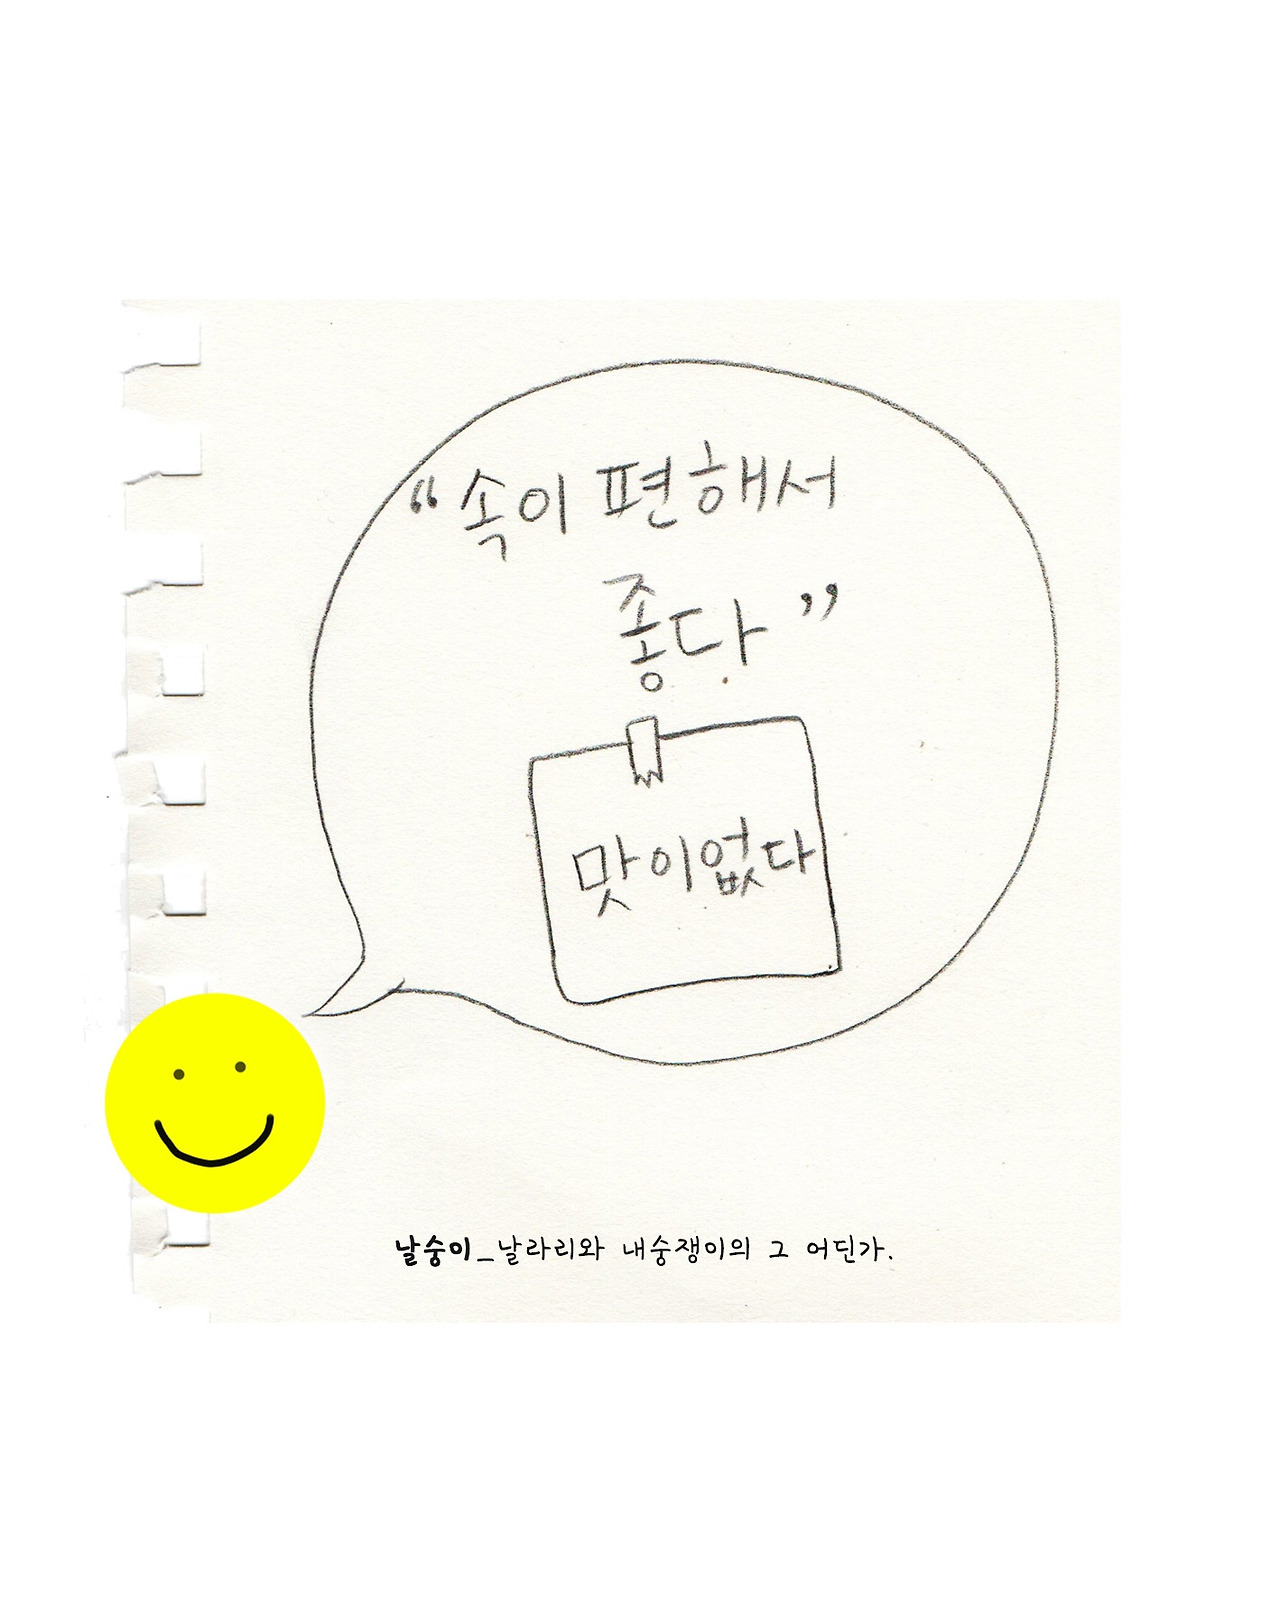 “속이 편해서
좋다”
맛이없다
날숭이_날라리와 내숭쟁이의 그 어딘가.